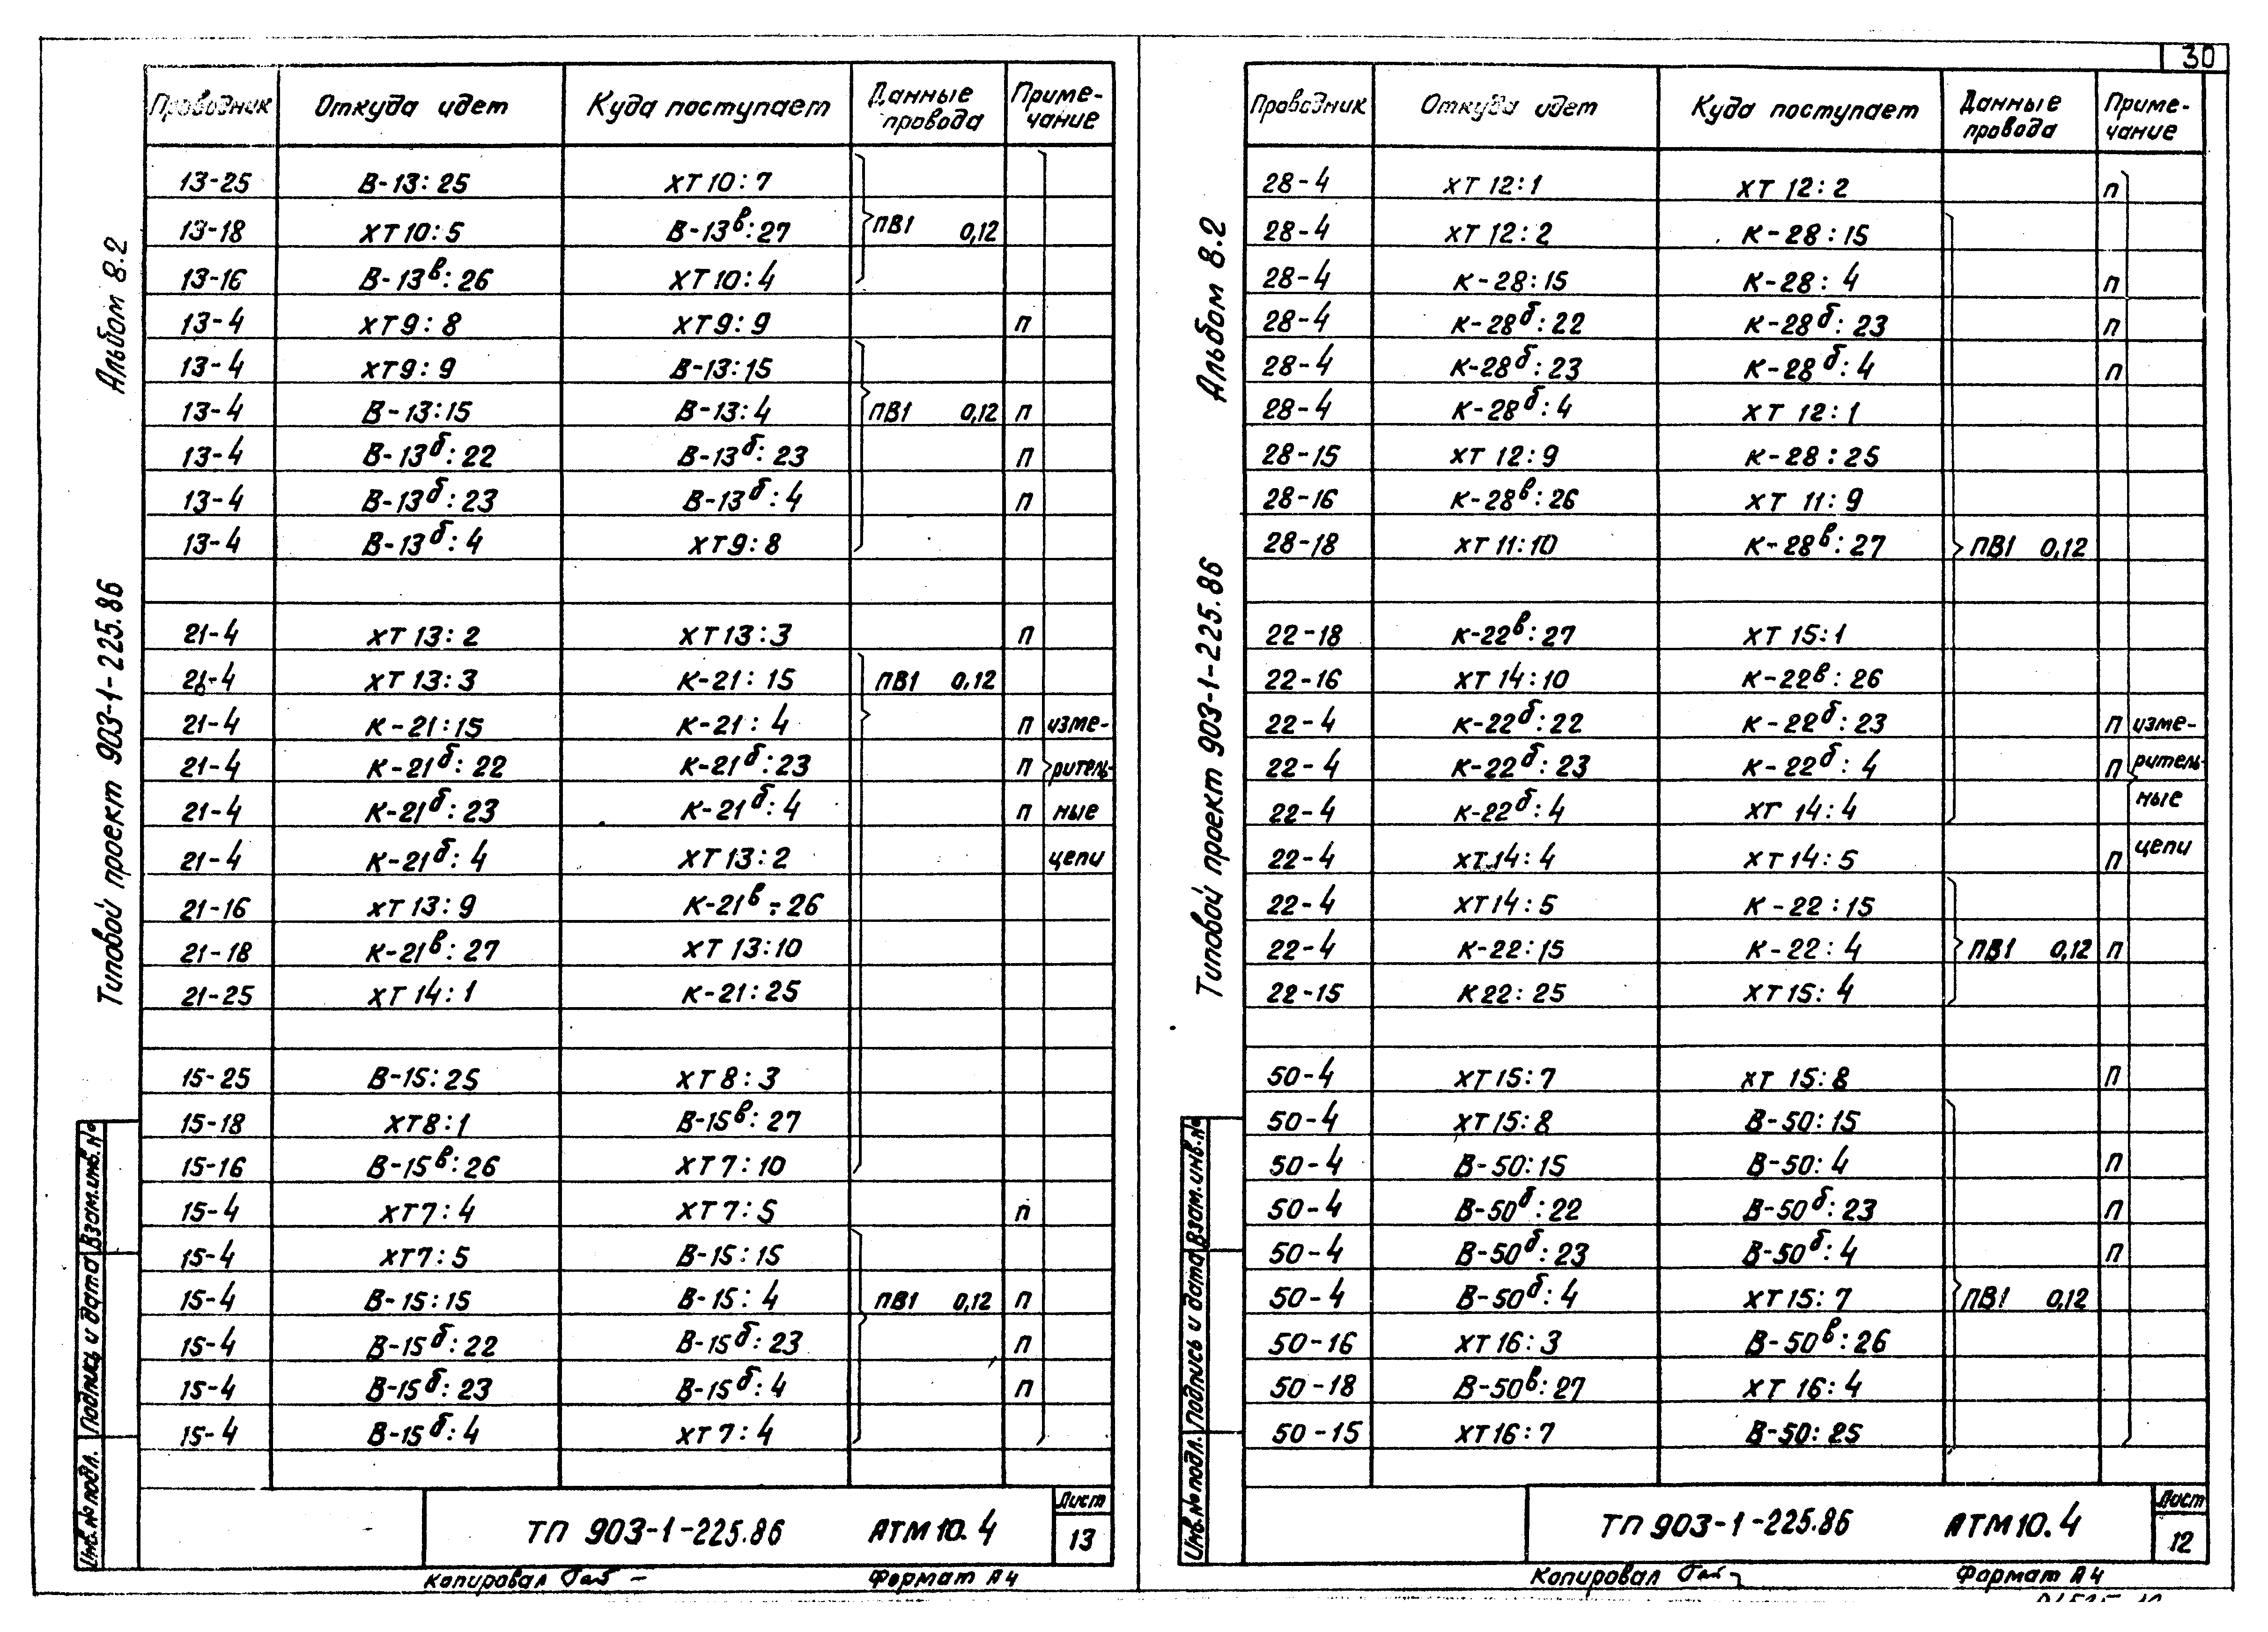 30
Альбом 8.2
Типовой проект 903-1-225.86
Проводник Откуда идет Куда поступает Данные провода Приме-чание
13-25 В-13:25 ХТ10:7
13-18 ХТ10:5 В-13в:27 ПВ1 0,12
13-16 В-13в:26 ХТ10:4
13-4 ХТ9:8 ХТ9:9 п
13-4 ХТ9:9 В-13:15
13-4 В-13:15 В-13:4 ПВ1 0,12 п
13-4 В-13б:22 В-13б:23 п
13-4 В-13б:23 В-13б:4 п
13-4 В-13б:4 ХТ9:8
21-4 ХТ13:2 ХТ13:3 п
21-4 ХТ13:3 К-21:15 ПВ1 0,12
21-4 К-21:15 К-21:4 п изме-
21-4 К-21б:22 К-21б:23 п ритель-
21-4 К-21б:23 К-21б:4 п ные
21-4 К-21б:4 ХТ13:2 цепи
21-16 ХТ13:9 К-21в:26
21-18 К-21в:27 ХТ13:10
21-25 ХТ14:1 К-21:25
15-25 В-15:25 ХТ8:3
15-18 ХТ8:1 В-15в:27
15-16 В-15в:26 ХТ7:10
15-4 ХТ7:4 ХТ7:5 п
15-4 ХТ7:5 В-15:15
15-4 В-15:15 В-15:4 ПВ1 0,12 п
15-4 В-15б:22 В-15б:23 п
15-4 В-15б:23 В-15б:4 п
15-4 В-15б:4 ХТ7:4
Инв.№ подл. Подпись и дата Взам.инв.№
ТП 903-1-225.86 АТМ10.4 Лист 13
Копировал Формат А4
Альбом 8.2
Типовой проект 903-1-225.86
Проводник Откуда идет Куда поступает Данные провода Приме-чание
28-4 ХТ12:1 ХТ12:2 п
28-4 ХТ12:2 К-28:15
28-4 К-28:15 К-28:4 п
28-4 К-28б:22 К-28б:23 п
28-4 К-28б:23 К-28б:4 п
28-4 К-28б:4 ХТ12:1
28-15 ХТ12:9 К-28:25
28-16 К-28в:26 ХТ11:9
28-18 ХТ11:10 К-28в:27 ПВ1 0,12
22-18 К-22в:27 ХТ15:1
22-16 ХТ14:10 К-22в:26
22-4 К-22б:22 К-22б:23 п изме-
22-4 К-22б:23 К-22б:4 п ритель-
22-4 К-22б:4 ХТ14:4 ные
22-4 ХТ14:4 ХТ14:5 п цепи
22-4 ХТ14:5 К-22:15
22-4 К-22:15 К-22:4 ПВ1 0,12 п
22-15 К22:25 ХТ15:4
50-4 ХТ15:7 ХТ15:8 п
50-4 ХТ15:8 В-50:15
50-4 В-50:15 В-50:4 п
50-4 В-50б:22 В-50б:23 п
50-4 В-50б:23 В-50б:4 п
50-4 В-50б:4 ХТ15:7 ПВ1 0,12
50-16 ХТ16:3 В-50в:26
50-18 В-50в:27 ХТ16:4
50-15 ХТ16:7 В-50:25
Инв.№ подл. Подпись и дата Взам.инв.№
ТП 903-1-225.86 АТМ10.4 Лист 12
Копировал Формат А4